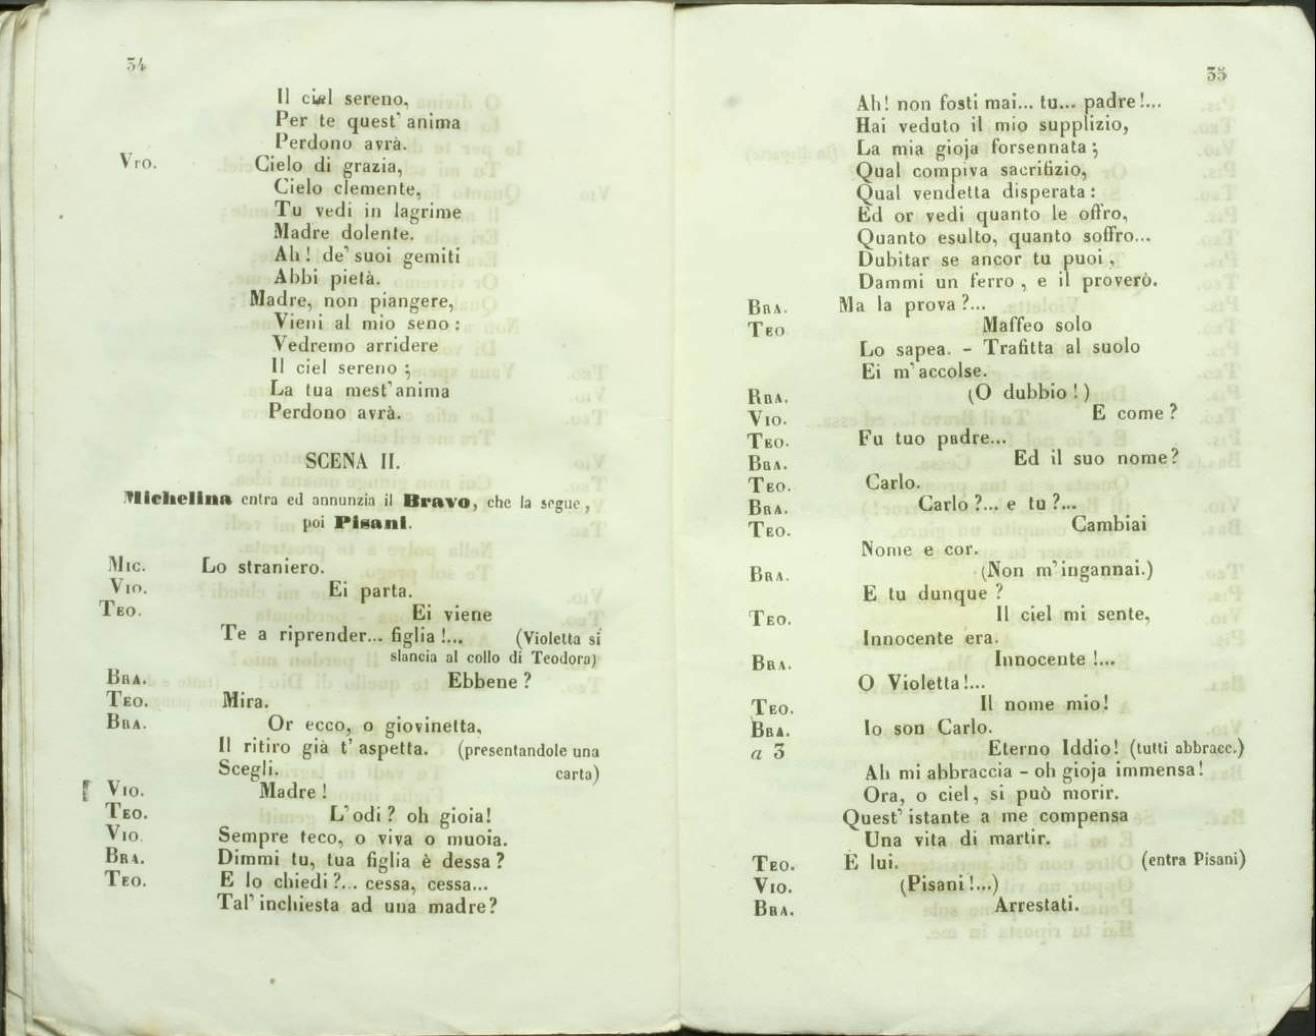 34
Il ciel sereno,
Per te quest' anima
Perdono avrà.
Vio. Cielo di grazia,
Cielo clemente,
Tu vedi in lagrime
Madre dolente.
Ah! de' suoi gemiti
Abbi pietà.
Madre, non piangere,
Vieni al mio seno:
Vedremo arridere
Il ciel sereno;
La tua mest' anima
Perdono avrà.
SCENA II.
Michelina entra ed annunzia il Bravo, che la segue,
poi Pisani.
Mic. Lo straniero.
Vio. Ei parta.
Teo. Ei viene
Te a riprender... figlia!... (Violetta si
slancia al collo di Teodora)
Bra. Ebbene?
Teo. Mira.
Bra. Or ecco, o giovinetta,
Il ritiro già t' aspetta. (presentandole una
Scegli. carta)
Vio. Madre!
Teo. L' odi? oh gioia!
Vio. Sempre teco, o viva o muoia.
Bra. Dimmi tu, tua figlia è dessa?
Teo. E lo chiedi?... cessa, cessa...
Tal' inchiesta ad una madre?
35
Ah! non fosti mai... tu... padre!...
Hai veduto il mio supplizio,
La mia gioja forsennata;
Qual compiva sacrifizio,
Qual vendetta disperata:
Ed or vedi quanto le offro,
Quanto esulto, quanto soffro...
Dubitar se ancor tu puoi,
Dammi un ferro, e il proverò.
Bra. Ma la prova?...
Teo Maffeo solo
Lo sapea. - Trafitta al suolo
Ei m' accolse.
Rra. (O dubbio!)
Vio. E come?
Teo. Fu tuo padre...
Bra. Ed il suo nome?
Teo. Carlo.
Bra. Carlo?... e tu?...
Teo. Cambiai
Nome e cor.
Bra. (Non m' ingannai.)
E tu dunque?
Teo. Il ciel mi sente,
Innocente era.
Bra. Innocente!...
O Violetta!...
Teo. Il nome mio!
Bra. Io son Carlo.
a 3 Eterno Iddio! (tutti abbracc.)
Ah mi abbraccia - oh gioja immensa!
Ora, o ciel, si può morir.
Quest' istante a me compensa
Una vita di martir.
Teo. È lui. (entra Pisani)
Vio. (Pisani!...)
Bra. Arrestati.